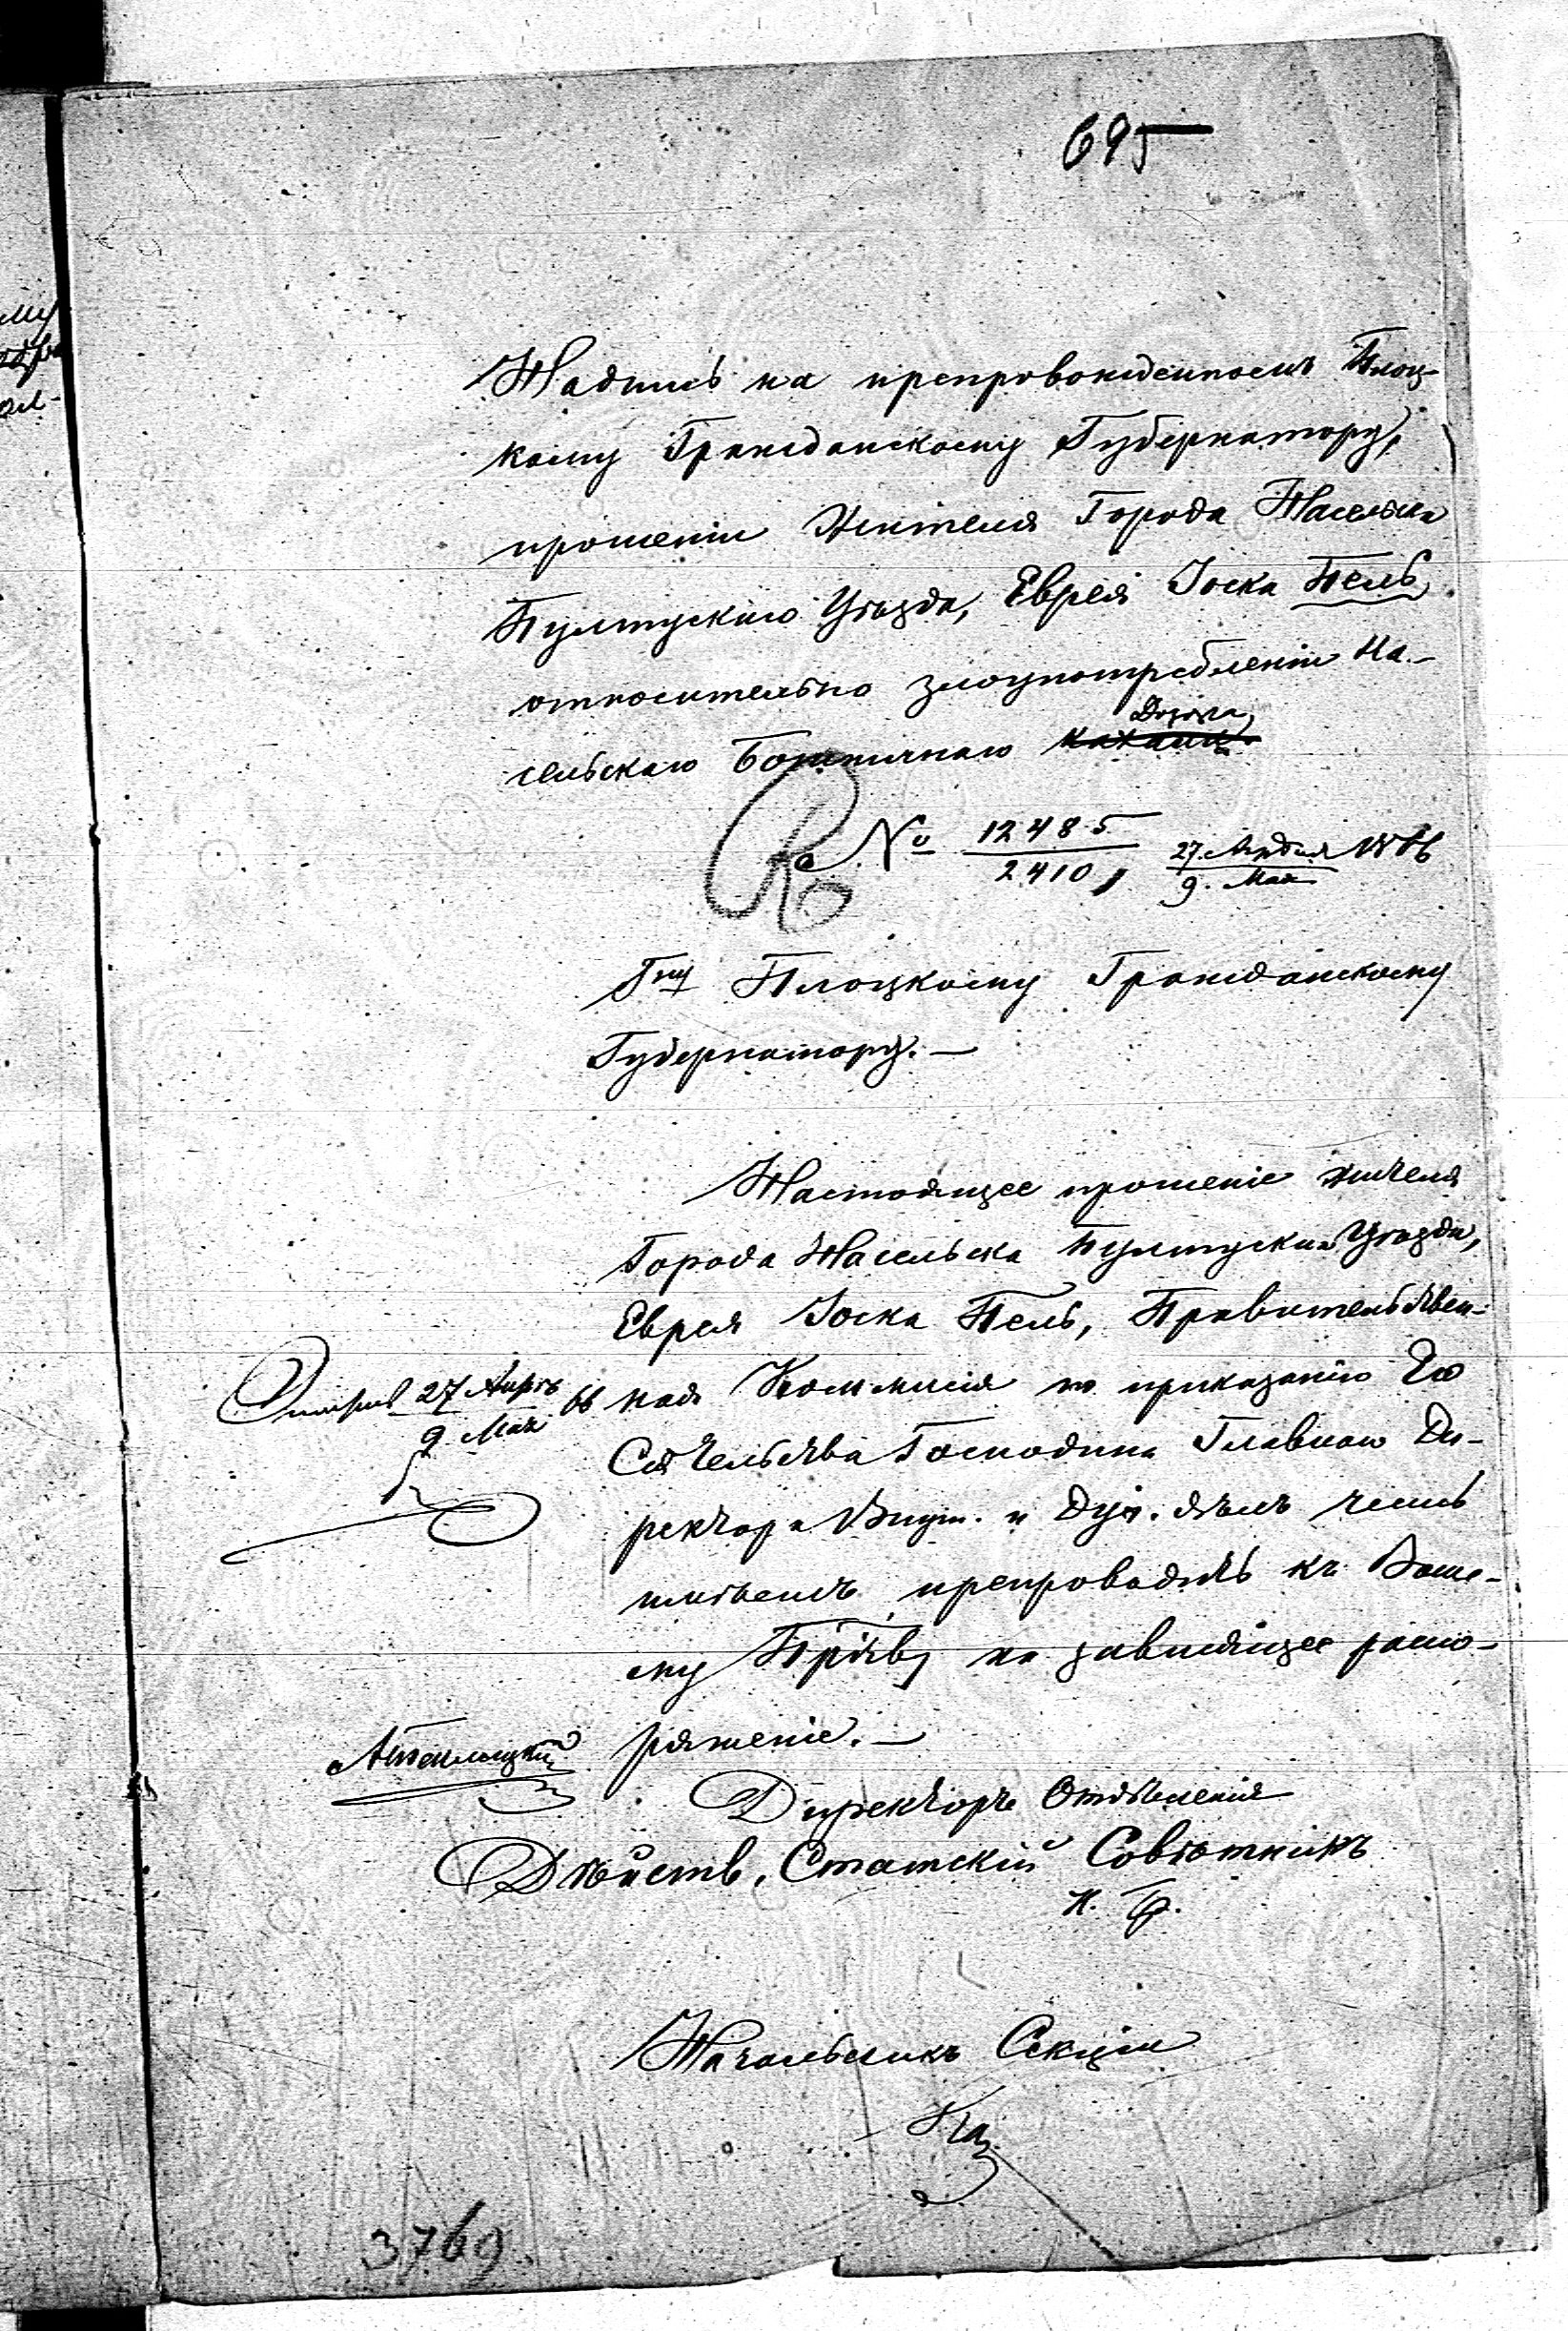 695
Надпись на препровожденномъ Плоц-
кому Гражданскому Губернатору,
прошеніи Жителя Города Насельска
Пултускаго Уѣзда, Еврея Іоска Пель
относительно злоупотребленій На-
сельскаго Божничнаго Дозора
№ 12485
2410, 27 Апрѣля 1866
9. Мая
Гну Плоцкому Гражданскому
Губернатору. —
Настоящее прошеніе жителя
Города Насельска Пултускаго Уѣзда,
Еврея Іоска Пель, Правительствен-
ная Коммисія по приказанію Его
Сіятельства Господина Главнаго Ди-
ректора Внутр. и Дух. дѣлъ честь
имѣетъ препроводить къ Ваше-
му Пр-ству на зависящее распо-
ряженіе. —
27 Апрѣ 66
9. Мая
Директоръ Отдѣленія
Дѣйств. Статскій Совѣтникъ
Начальникъ Секціи
3769